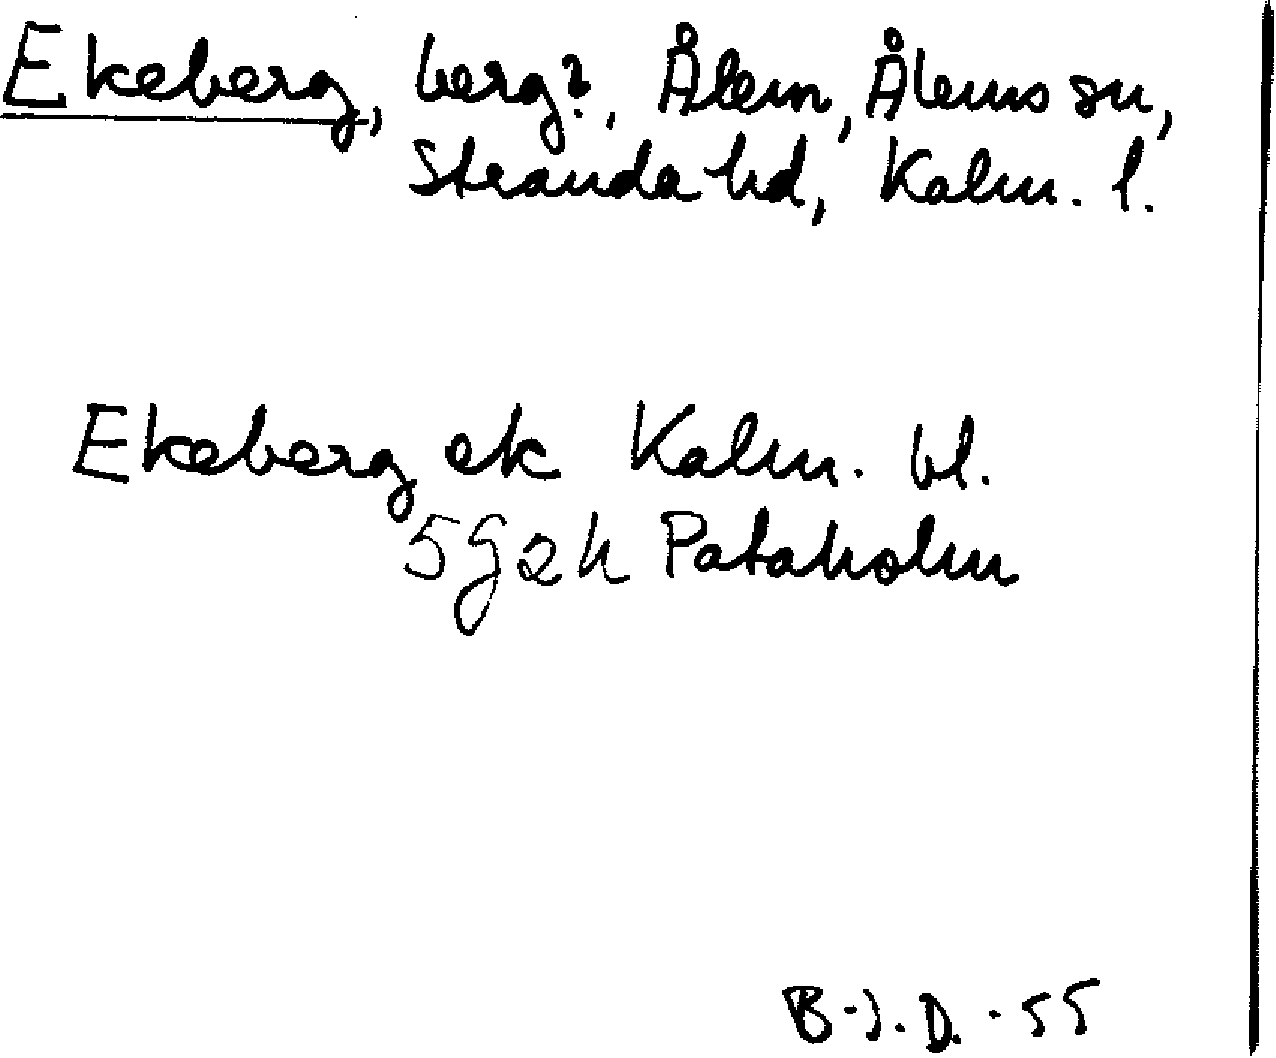 Ekeberg, berg?, Ålem, Ålems sn,
Stranda hd, Kalm. l.
Ekeberg ek Kalm. bl.
5G2h Pataholm
B-J.D.-55